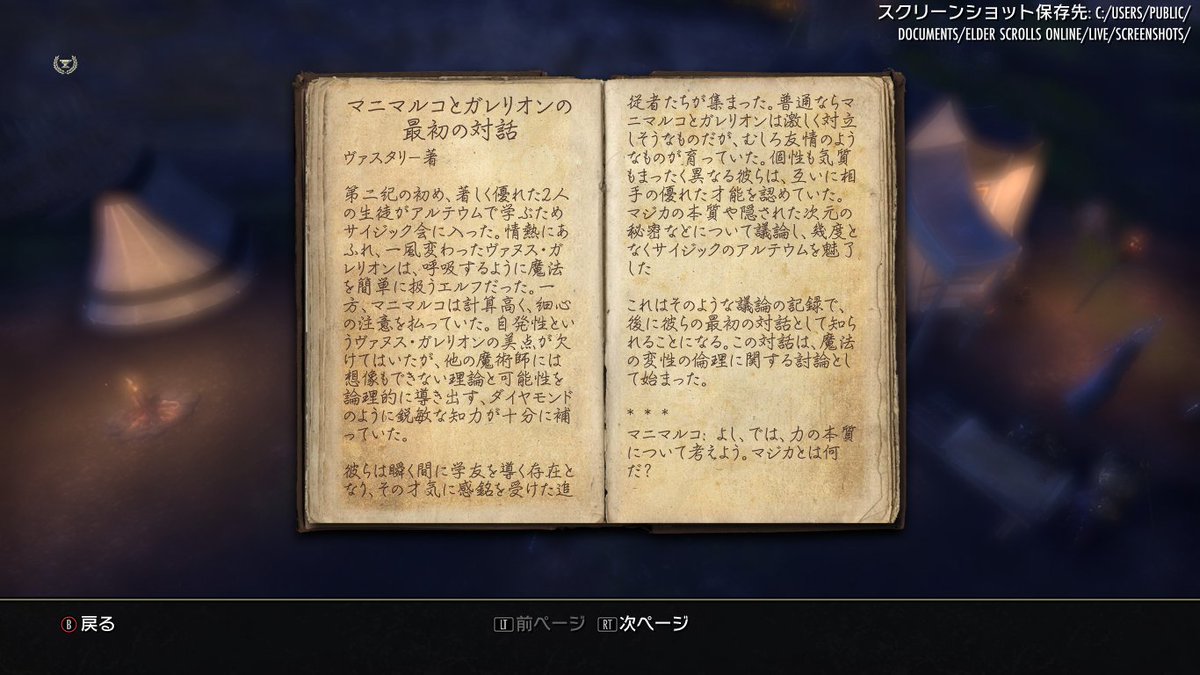 スクリーンショット保存先: C:/USERS/PUBLIC/
DOCUMENTS/ELDER SCROLLS ONLINE/LIVE/SCREENSHOTS/
マニマルコとガレリオンの
最初の対話
ヴァスタリー著
第二紀の初め、著しく優れた2人
の生徒がアルテウムで学ぶため
サイジック会に入った。情熱にあ
ふれ、一風変わったヴァヌス・ガ
レリオンは、呼吸するように魔法
を簡単に扱うエルフだった。一
方、マニマルコは計算高く、細心
の注意を払っていた。自発性とい
うヴァヌス・ガレリオンの美点が欠
けてはいたが、他の魔術師には
想像もできない理論と可能性を
論理的に導き出す、ダイヤモンド
のように鋭敏な知力が十分に補
っていた。
彼らは瞬く間に学友を導く存在と
なり、その才気に感銘を受けた追
従者たちが集まった。普通ならマ
ニマルコとガレリオンは激しく対立
しそうなものだが、むしろ友情のよう
なものが育っていた。個性も気質
もまったく異なる彼らは、互いに相
手の優れた才能を認めていた。
マジカの本質や隠された次元の
秘密などについて議論し、幾度と
なくサイジックのアルテウムを魅了
した
これはそのような議論の記録で、
後に彼らの最初の対話として知ら
れることになる。この対話は、魔法
の変性の倫理に関する討論とし
て始まった。
* * *
マニマルコ: よし、では、力の本質
について考えよう。マジカとは何
だ?
B 戻る
LT 前ページ RT 次ページ